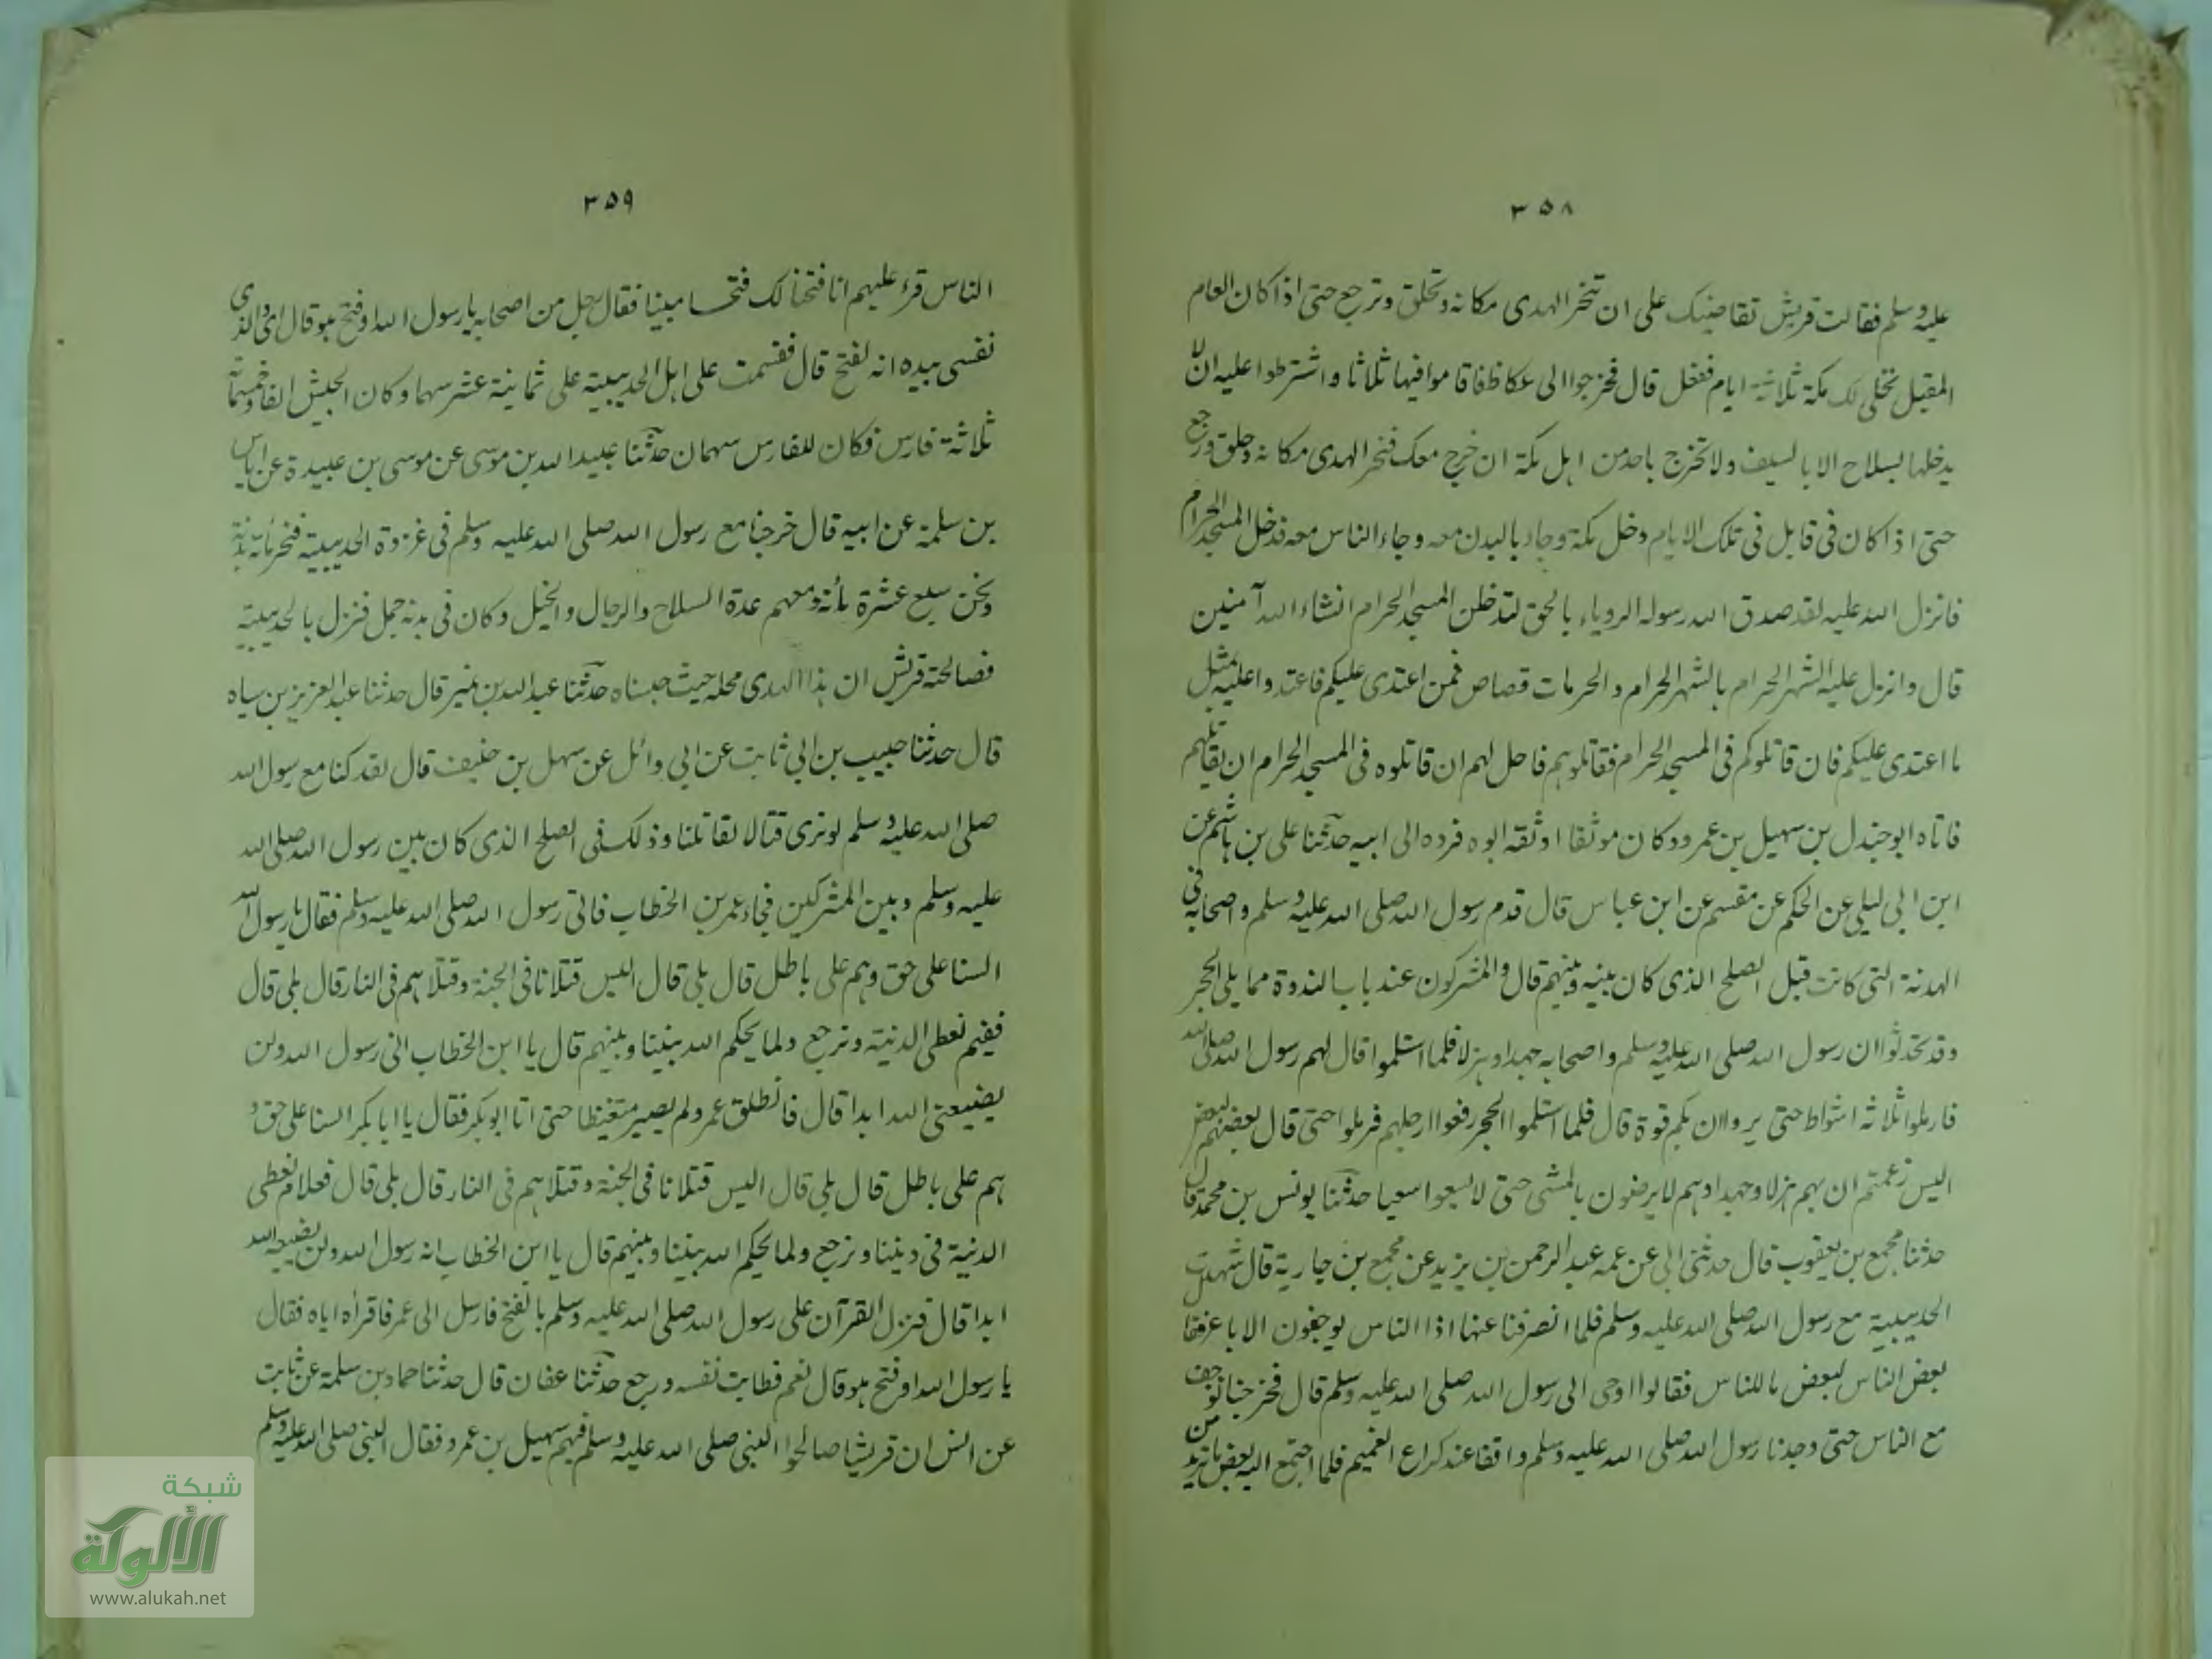 ٣٥٨
عليه وسلم فقالت قريش نقاضيك على ان تنحر الهدى مكانه وتحلق وترجع حتى اذا كان العام
المقبل نخلى لك مكة ثلاثة ايام ففعل قال فخرجوا الى عكاظ فاقاموا فيها ثلاثا واشترطوا عليه ان لا
يدخلها بسلاح الا بالسيف ولا تخرج باحد من اهل مكة ان خرج معك فنحر الهدى مكانه وحلق ورجع
حتى اذا كان فى قابل فى تلك الايام دخل مكة وجاء بالبدن معه وجاء الناس معه فدخل المسجد الحرام
فانزل الله عليه لقد صدق الله رسوله الروياء بالحق لتدخلن المسجد الحرام انشاء الله آمنين
قال وانزل عليه الشهر الحرام بالشهر الحرام والحرمات قصاص فمن اعتدى عليكم فاعتدوا عليه بمثل
ما اعتدى عليكم فان قاتلوكم فى المسجد الحرام فقاتلوهم فاحل لهم ان قاتلوه فى المسجد الحرام ان يقاتلهم
فاتاه ابو جندل بن سهيل بن عمرو وكان موثقا اوثقه ابوه فرده الى ابيه حدثنا على بن هاشم عن
ابن ابى ليلى عن الحكم عن مقسم عن ابن عباس قال قدم رسول الله صلى الله عليه وسلم واصحابه فى
الهدنة التى كانت قبل الصلح الذى كان بينه وبينهم قال والمشركون عند باب الندوة مما يلى الحجر
وقد تحدثوا ان رسول الله صلى الله عليه وسلم واصحابه جهدا وهزلا فلما استلموا قال لهم رسول الله صلى الله
فارملوا ثلاثه اشواط حتى يروا ان بكم قوة قال فلما استلموا الحجر رفعوا ارجلهم فرملوا حتى قال بعضهم لبعض
اليس زعمتم ان بهم هزلا وجهدا وهم لا يرضون بالمشى حتى لا يسعوا سعيا حدثنا يونس بن محمد قال
حدثنا مجمع بن يعقوب قال حدثنى ابى عن عمه عبد الرحمن بن يزيد عن مجمع بن جارية قال شهدت
الحديبية مع رسول الله صلى الله عليه وسلم فلما انصرفنا عنها اذا الناس يوجفون الاباعر فقا
بعض الناس لبعض ما للناس فقالوا اوحى الى رسول الله صلى الله عليه وسلم قال فخرجنا نوجف
مع الناس حتى وجدنا رسول الله صلى الله عليه وسلم واقفا عند كراع الغميم فلما اجتمع اليه بعض ما يريد من
٣٥٩
الناس قرء عليهم انا فتحنا لك فتحا مبينا فقال رجل من اصحابه يا رسول الله او فتح هو قال اى والذى
نفسى بيده انه لفتح قال فقسمت على اهل الحديبية على ثمانية عشر سهما وكان الجيش الفا وخمسمائة
ثلاثة فارس فكان للفارس سهمان حدثنا عبيد الله بن موسى عن موسى بن عبيدة عن اياس
بن سلمة عن ابيه قال خرجنا مع رسول الله صلى الله عليه وسلم فى غزوة الحديبية فنحر مائة بدنة
ونحن سبع عشرة مأئة ومعهم عدة السلاح والرجال والخيل وكان فى بدنه جمل فنزل بالحديبية
فصالحته قريش ان هذا الهدى محله حيث حبسناه حدثنا عبد الله بن نمير قال حدثنا عبد العزيز بن سياه
قال حدثنا حبيب بن ابى ثابت عن ابى وائل عن سهل بن حنيف قال لقد كنا مع رسول الله
صلى الله عليه وسلم لو نرى قتالا لقاتلنا وذلك فى الصلح الذى كان بين رسول الله صلى الله
عليه وسلم وبين المشركين فجاء عمر بن الخطاب فاتى رسول الله صلى الله عليه وسلم فقال يا رسول الله
السنا على حق وهم على باطل قال بلى قال اليس قتلانا فى الجنة وقتلاهم فى النار قال بلى قال
ففيم نعطى الدنية ونرجع ولما يحكم الله بيننا وبينهم قال يا ابن الخطاب انى رسول الله ولن
يضيعنى الله ابدا قال فانطلق عمر ولم يصبر متغيظا حتى اتا ابو بكر فقال يا ابا بكر السنا على حق و
هم على باطل قال بلى قال اليس قتلانا فى الجنة وقتلاهم فى النار قال بلى قال فعلام نعطى
الدنية فى ديننا ونرجع ولما يحكم الله بيننا وبينهم قال يا ابن الخطاب انه رسول الله ولن يضيعه الله
ابدا قال فنزل القرآن على رسول الله صلى الله عليه وسلم بالفتح فارسل الى عمر فاقراه اياه فقال
يا رسول الله او فتح هو قال نعم فطابت نفسه ورجع حدثنا عفان قال حدثنا حماد بن سلمة عن ثابت
عن انس ان قريشا صالحوا النبى صلى الله عليه وسلم فيهم سهيل بن عمرو فقال النبى صلى الله عليه وسلم
شبكة
الألوكة
www.alukah.net